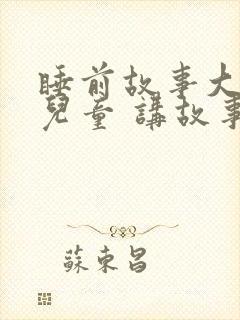 睡前故事大
兒童 講故事
蘇東昌